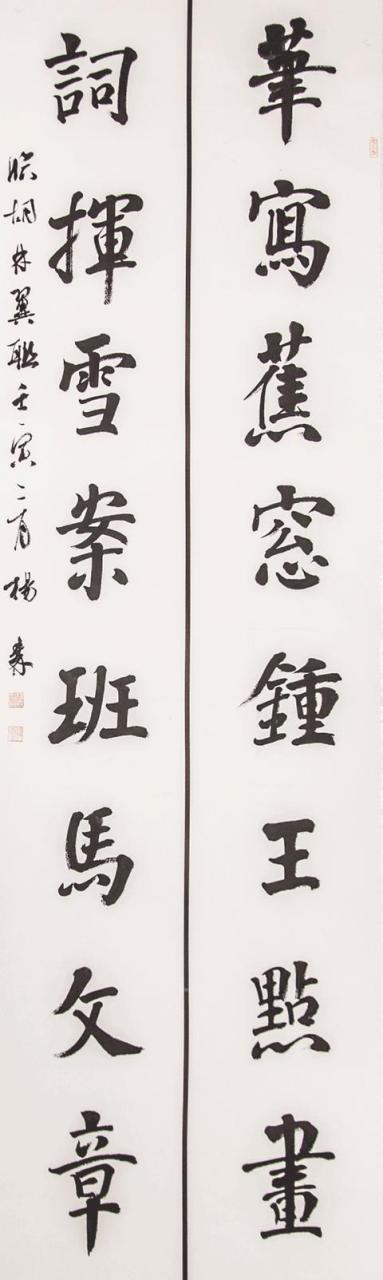 筆寫蕉窓鍾王點畫
詞揮雪案班馬文章
臨胡林翼聯壬寅二月楊森